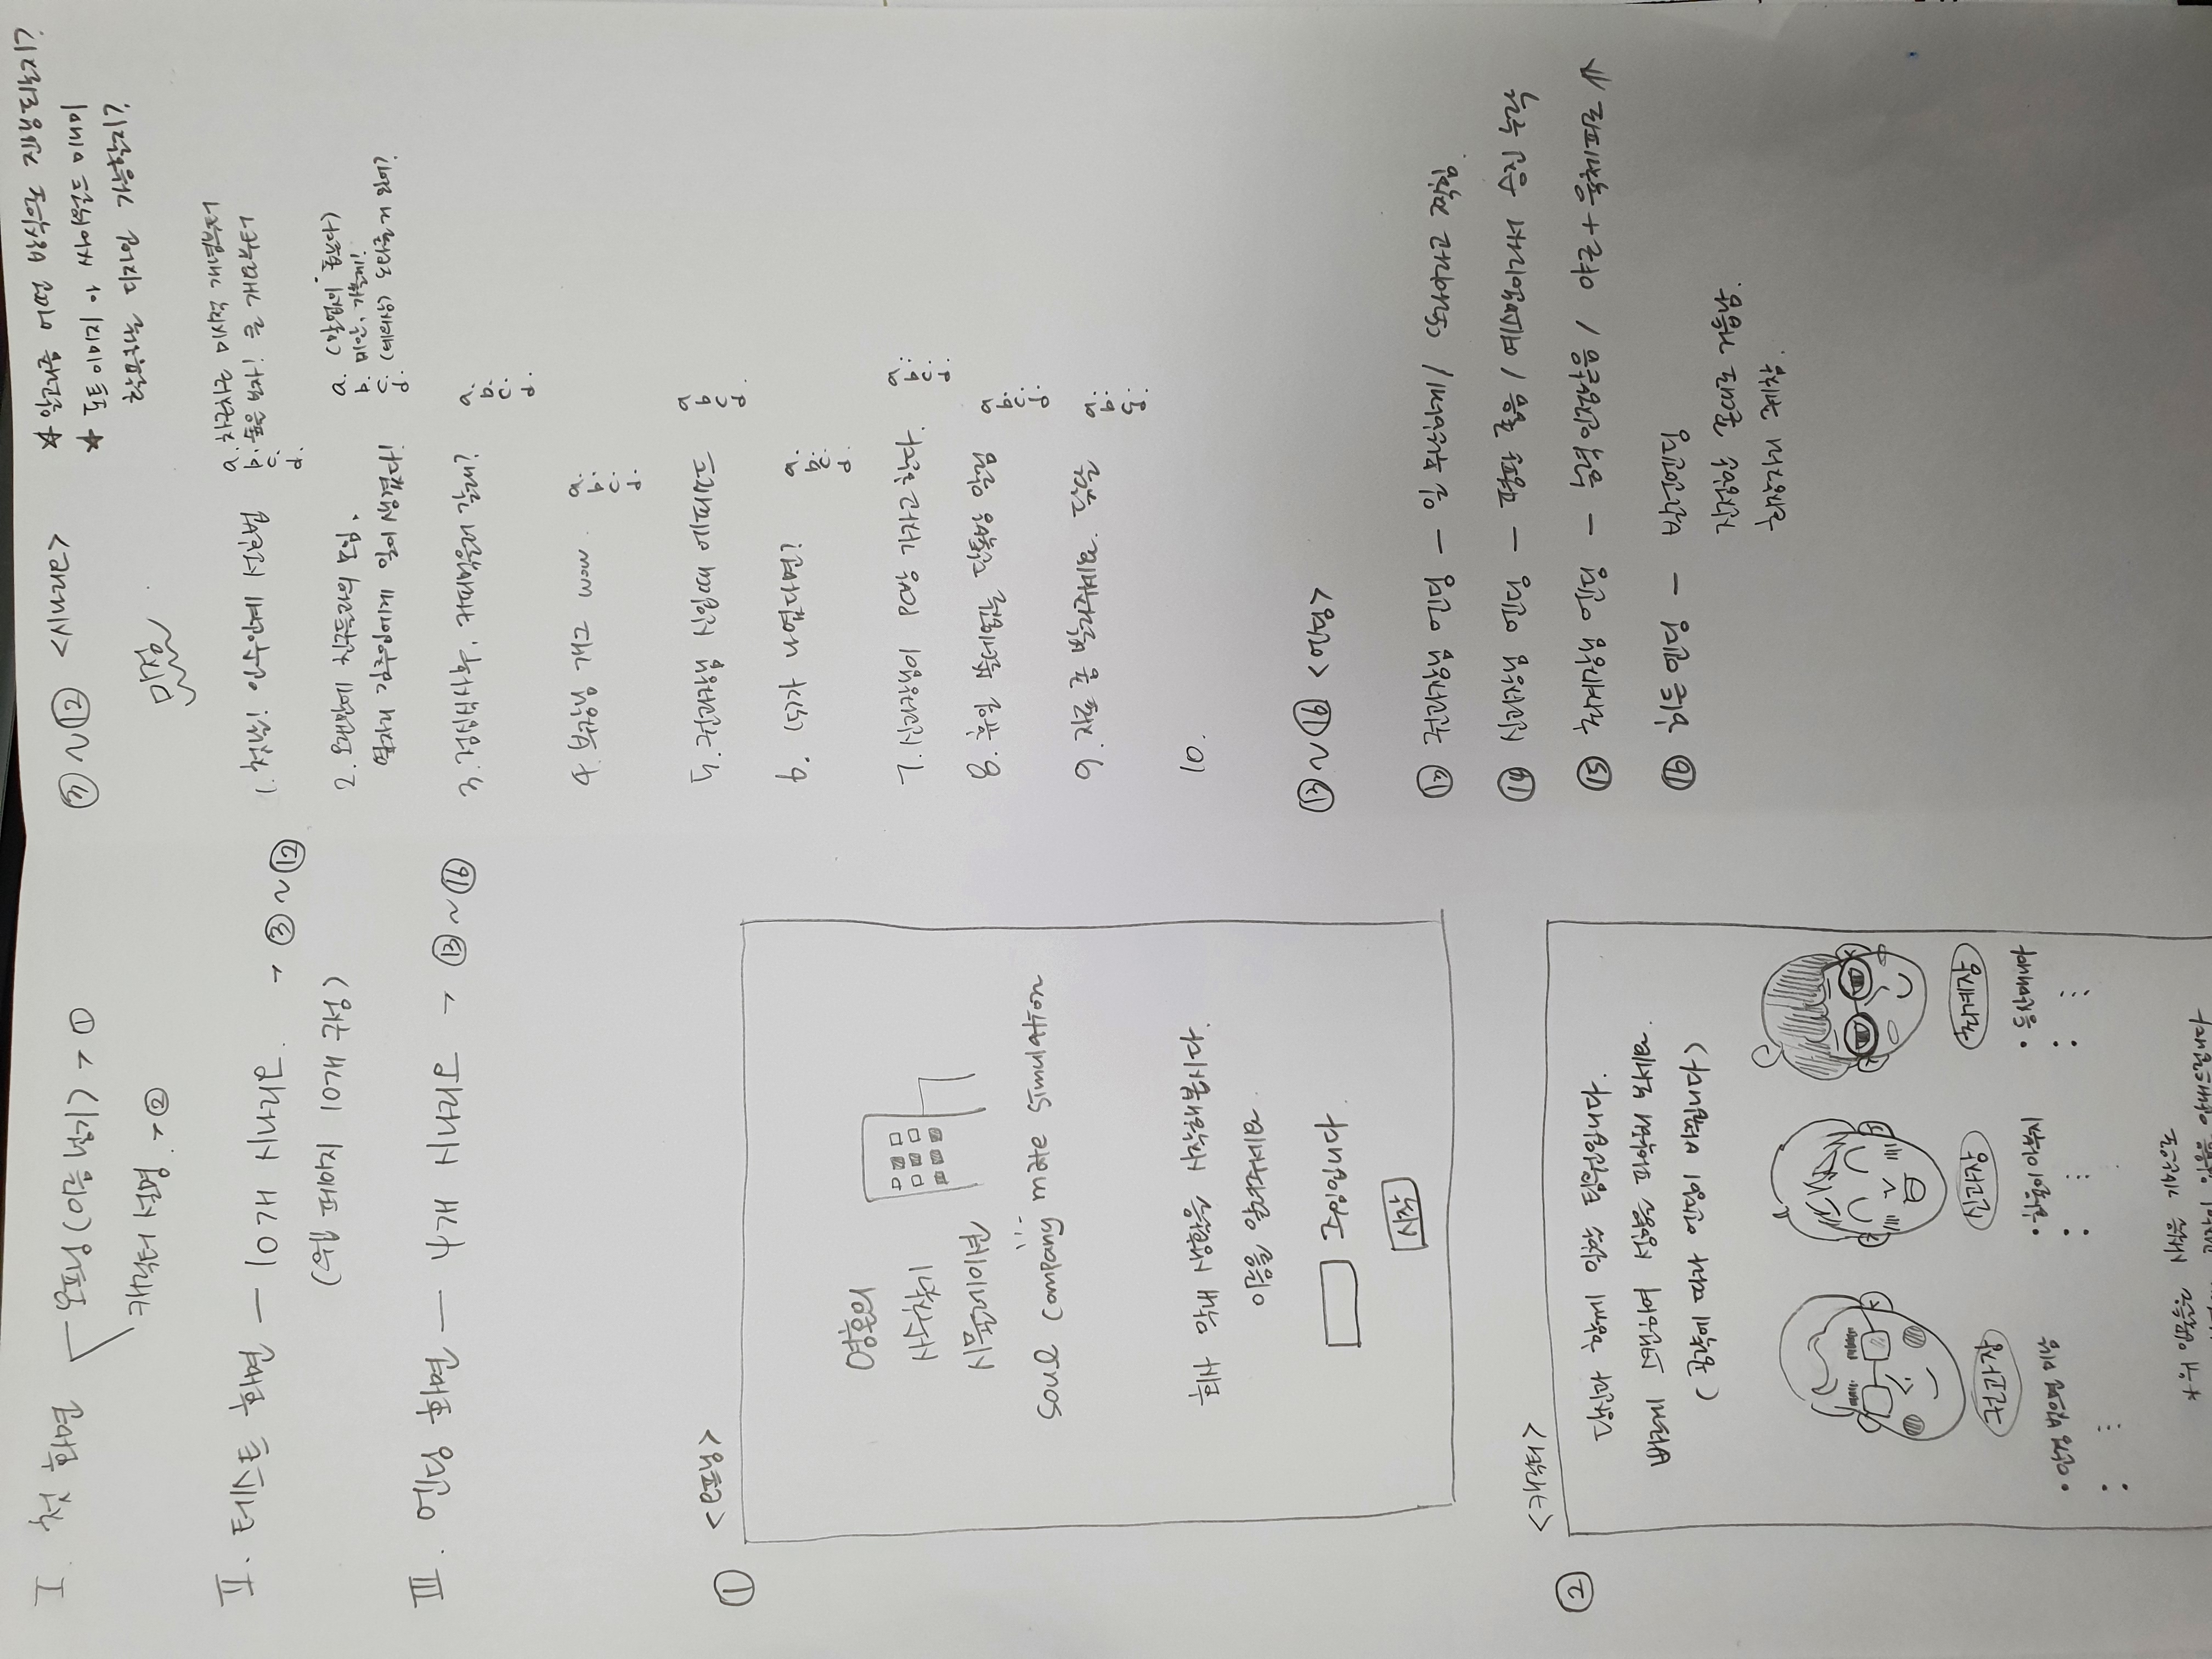 Ⅰ. 첫 화면
오프닝 (이름 넣기) → ①
캐릭터 설명. → ②
Ⅱ. 테스트 화면 — 10개 시나리오. → ③~⑫
(웹 페이지 10개 구성)
Ⅲ. 엔딩 화면 — 4개 시나리오 → ⑬~⑯
① <오프닝>
영혼의
사수찾기
시뮬레이션
soul company mate simulation
회사 막내 생활을 시작해봅시다.
이름을 알려주세요.
주임입니다.
시작
② <캐릭터>
당신과 함께 일할 팀원입니다.
빠르게 스캔하여 성향을 파악해 보세요.
(공략에 따라 엔딩이 바뀝니다)
권과장
신과장
최계장
• 안경 벗으면 미남
• 하율이 아부지
• 등산매니아
* 위 인물들은 사실을 기반으로
과장이 있음을 안내드립니다
③~⑫ <시나리오>
미정
★ 알고리즘 어떤 방식으로 진행되는지?
★ 도트이미지 야 싸이월드 미니미
활용하는 디자인 가능할지?
1. 첫날! 인수인계 선호법
a. 차근차근 미시적 개념부터
b. 숲을 보자! 큰 개념부터
c.
d.
2. 오랜만에 친구들과의 모임,
옆자리 김주임에게 일이 생겼다!
a. (말없이 돕는다)
b. 미안, 가볼게!
c. (예의상) 도와줄거 있어?
d.
3. 점심식사후, 커피먹을러 갈래?
a.
b.
c.
d.
4. 부장님 개그 wow
a.
b.
c.
d.
5. 권과장님 신입때 에피소드
a
b
c
d.
6. (5)가 나였다면?
a.
b.
c.
d.
7. 신과장님이 PC방 가자고한다.
a.
b.
c.
d.
8. 휴일 쓸데없는 단톡방 알림
a
b.
c.
d.
9. 자료 좀 빨리주세요. 닦달
a.
b.
c.
10.
⑬~⑯ <엔딩>
⑬ 권과장님 엔딩 — 일 무난하게 / 또라이라고 찍힘.
⑭ 신과장님 엔딩 — 평판 좋음 / 예스맨이라서 승진 누락
⑮ 최계장님 엔딩 — 능력 인정받음 / 야근 + 육체피로 ⇑
⑯ 히든 엔딩 — 발전엔딩
진정한 꼰대로 거듭남.
회장자리 꿰참.